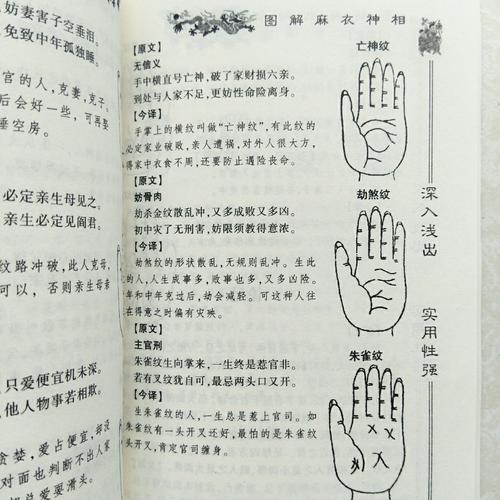 妨妻害子空垂泪。
免致中年孤独睡。
官的人，克妻，克子，
后会好一些，可再娶
垂空房。
必定亲生母见之。
亲生必定见阎君。
纹路冲破，此人克母，
可以，否则亲生母亲
只爱便宜机未深。
他人物事若相欺。
贪婪，爱占便宜，却没
对面也判断不出人家
总爱耍滑头。
图解麻衣神相
【原文】
无信义
手中横直号亡神，破了家财损六亲。
到处与人家不足，更妨性命险离身。
【今译】
手掌上的横纹叫做“亡神纹”，有此纹的
必定家业破败，亲人遭祸，对外人很大方，
得家中衣食不周，还要防止遇险丧命。
【原文】
妨骨肉
劫杀金纹散乱冲，又多成败又多凶。
初中灾了无刑害，妨限须教得意浓。
【今译】
劫煞纹的形状散乱，无规则乱冲。生此
的人，人生成事多，败事也多，又多凶险。
年和中年克过后，劫会减轻。可这种人往
在得意之时偏有灾殃。
【原文】
主官刑
朱雀纹生向掌来，一生终是惹官非。
若有叉纹犹自可，最忌两头口又开。
【今译】
生朱雀纹的人，一生总是惹上官司。如
朱雀纹有一头开叉还好，最怕的是朱雀纹
头开叉，肯定官司缠身。
亡神纹
劫煞纹
朱雀纹
深入浅出
实用性强